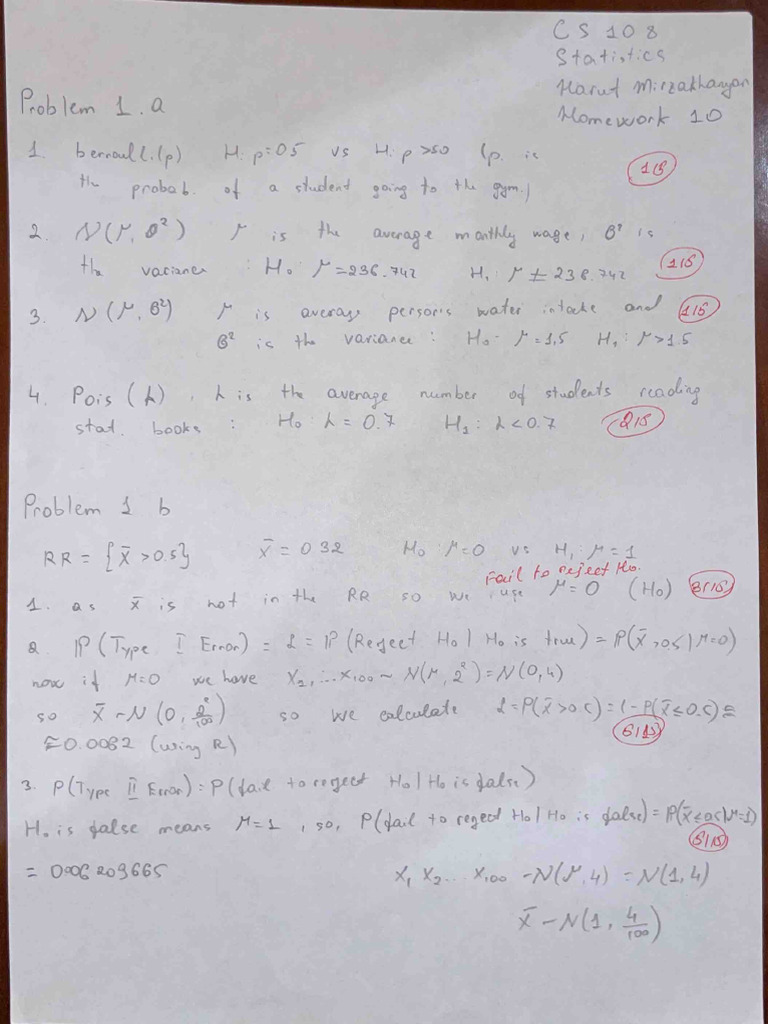 CS 108
Statistics
Harut Mirzakhanyan
Homework 10
Problem 1.a
1. bernoulli(p) H: p=05 vs H: p>50 (p. is
the probab. of a student going to the gym.)
2. N(μ, σ²) μ is the average monthly wage, σ² is
the variance : H₀: μ=236.742 H₁: μ≠236.742
3. N(μ, σ²) μ is average person's water intake and
σ² is the variance : H₀: μ=1,5 H₁: μ>1.5
4. Pois(λ), λ is the average number of students reading
stat. books : H₀: λ = 0.7 H₁: λ<0.7
Problem 1 b
RR = {x̄ >0.5} x̄ = 032 H₀: μ=0 vs H₁: μ=1
Fail to reject H₀.
1. as x̄ is not in the RR so we use μ=0 (H₀)
2. P(Type I Error) = α = P(Reject H₀ | H₀ is true) = P(x̄>0.5|μ=0)
now if μ=0 we have X₂,...X₁₀₀ ~ N(μ, 2²)=N(0,4)
so x̄ ~ N(0, 2²/100) so we calculate α=P(x̄>0.5)=1-P(x̄≤0.5)≅
≅0.0062 (using R)
3. P(Type II Error) = P(fail to reject H₀ | H₀ is false)
H₀ is false means μ=1, so, P(fail to reject H₀ | H₀ is false) = P(x̄≤0.5|μ=1)
= 0.006209665 X₁ X₂... X₁₀₀ ~N(μ,4) = N(1,4)
x̄ ~ N(1, 4/100)